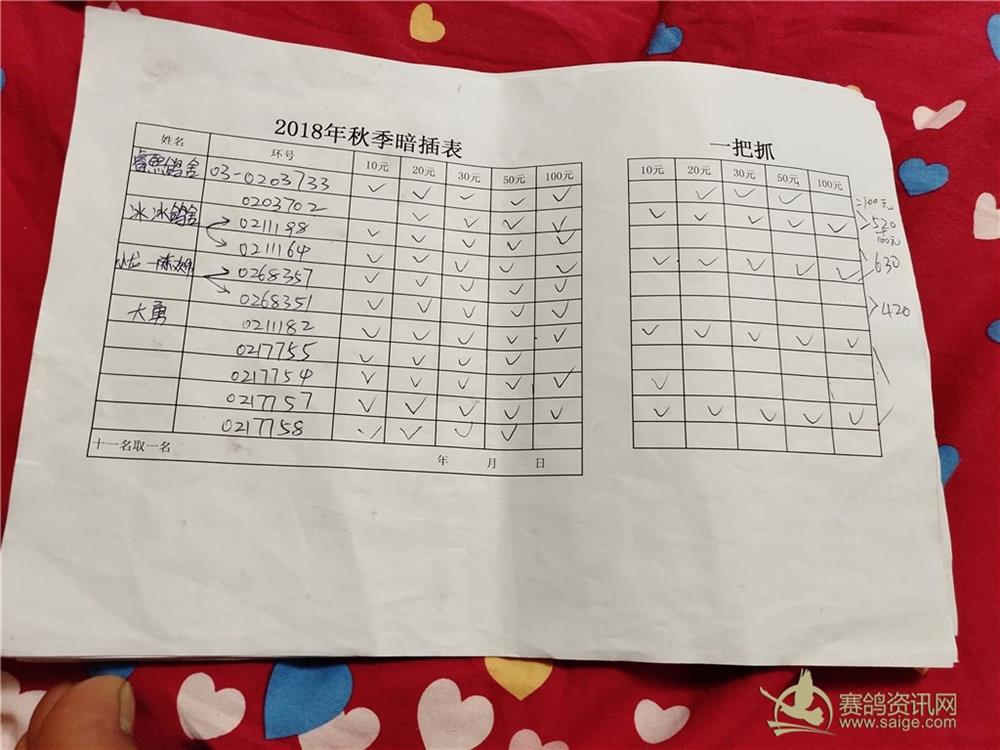 2018年秋季暗插表
姓名 环号 10元 20元 30元 50元 100元
睿熙鸽舍 03-0203733 ✓ ✓ ✓ ✓ ✓
0203702 ✓ ✓ ✓ ✓
冰冰鸽舍 0211188 ✓ ✓ ✓ ✓ ✓
0211164 ✓ ✓ ✓ ✓ ✓
0268357 ✓ ✓ ✓ ✓ ✓
0268351 ✓ ✓ ✓ ✓ ✓
大勇 0211182 ✓ ✓ ✓ ✓ ✓
0217755 ✓ ✓ ✓ ✓
0217754 ✓ ✓ ✓ ✓ ✓
0217757 ✓ ✓ ✓ ✓ ✓
0217758 ✓ ✓ ✓ ✓
十一名取一名 年 月 日
一把抓
10元 20元 30元 50元 100元
✓ ✓ ✓
✓ ✓ ✓ ✓ ✓
✓ ✓ ✓ ✓ ✓
✓ ✓ ✓ ✓ ✓
✓
✓ ✓ ✓ ✓ ✓
=100元
520
+
100元
630
420
赛鸽资讯网
www.saige.com